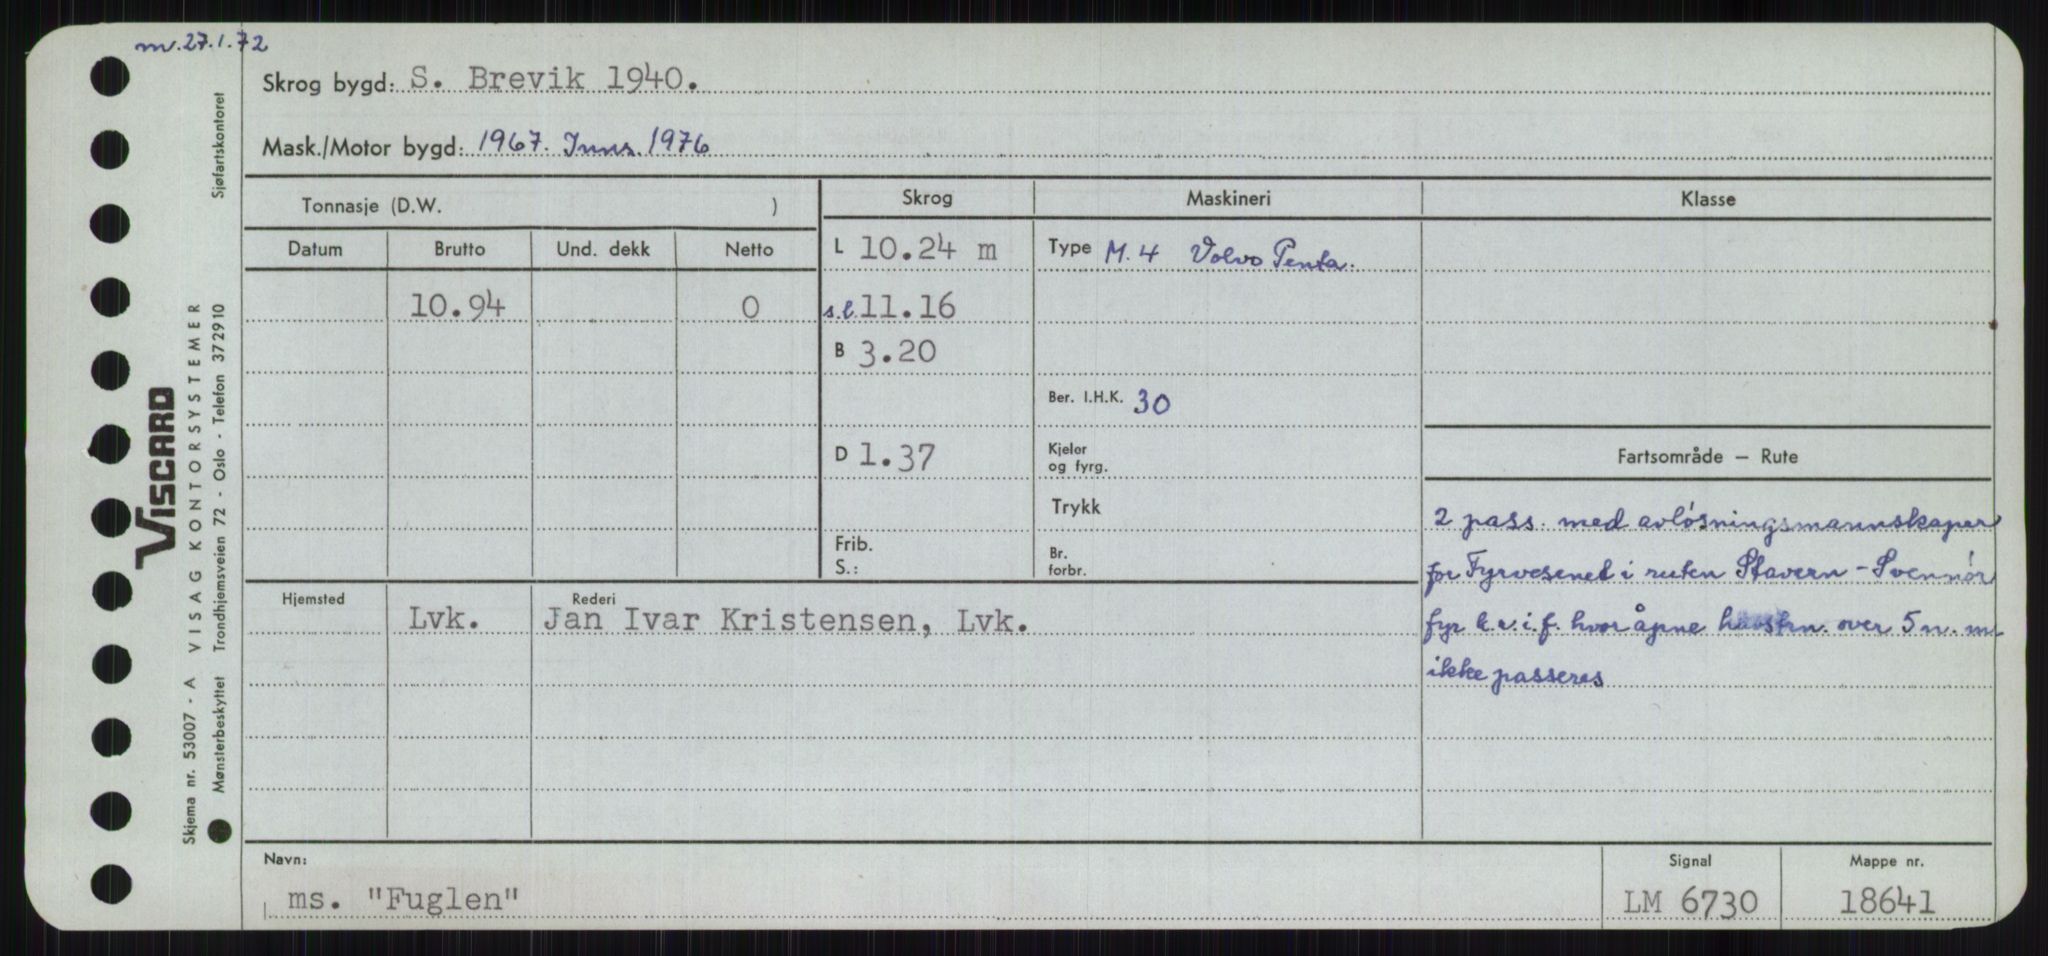 m. 27.1.72
Skrog bygd: S. Brevik 1940.
Mask./Motor bygd: 1967. Inns. 1976
Tonnasje (D.W. )
Datum Brutto Und. dekk Netto
10.94 0
Skrog
L 10.24 m
s.l. 11.16
B 3.20
D 1.37
Frib.
S.:
Maskineri
Type M. 4 Volvo Penta.
Ber. I.H.K. 30
Kjeler
og fyrg.
Trykk
Br.
forbr.
Klasse
Fartsområde — Rute
2 pass. med avløsningsmannskaper
for Fyrvesenet i ruten Stavern - Svennør
fyr k.v.i.f. hvor åpne havstrn. over 5 n. m
ikke passeres
Hjemsted Rederi
Lvk. Jan Ivar Kristensen, Lvk.
Navn:
ms. "Fuglen"
Signal
LM 6730
Mappe nr.
18641
VISCARD
Skjema nr. 53007 - A VISAG KONTORSYSTEMER
Mønsterbeskyttet Trondhjemsveien 72 - Oslo - Telefon 372910 Sjøfartskontoret